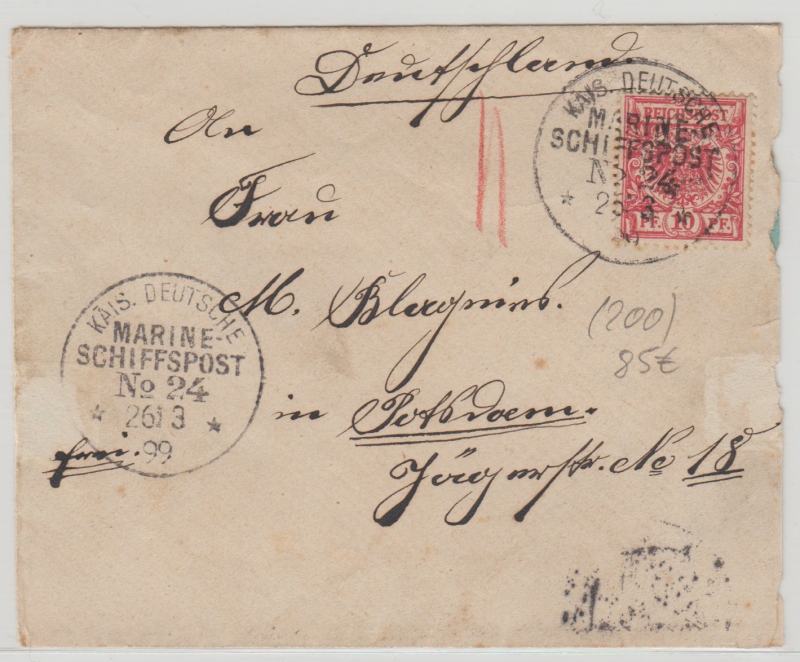 Deutschland.
KAIS. DEUTSCHE
MARINE-
SCHIFFSPOST
No 24
* 26/3 *
REICHSPOST
PF. 10 PF.
An
Frau
M. Blagnies.
(200)
85€
KAIS. DEUTSCHE
MARINE-
SCHIFFSPOST
No 24
* 26/3 *
99
in Potsdam.
frei.
Jägerstr. No 18